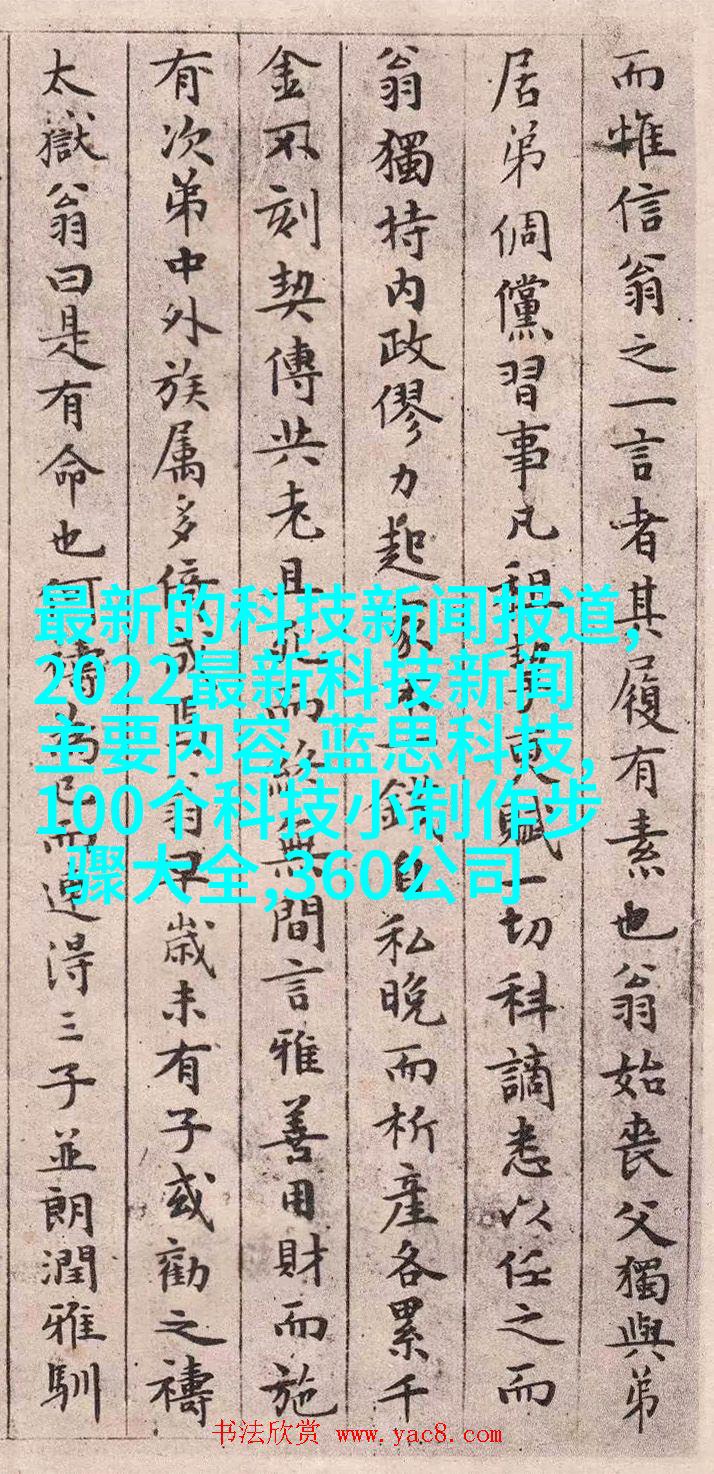 而惟信翁之一言者其履有素也翁始喪父獨與弟
居弟倜儻習事凡租挈更賦一切科謫悉以任之而
翁獨持内政僇力起家不一錢自私晚而析產各累千
金不刻契傳共老且死而終無間言雅善用財而施
有次第中外族属多倚成焉翁早歲未有子或勸之禱
太嶽翁曰是有命也何禱為已而連得三子並朗潤雅馴
最新的科技新闻报道,
2022最新科技新闻
主要内容,蓝思科技,
100个科技小制作步
骤大全,360公司
书法欣赏 www.yac8.com